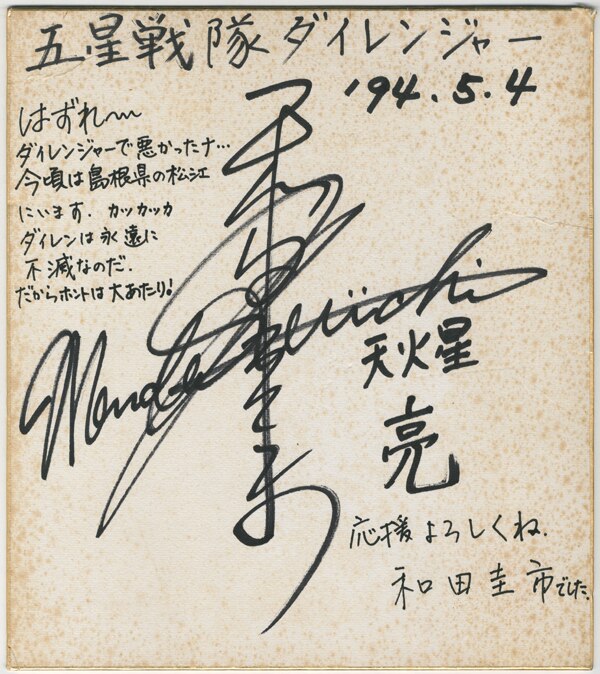 五星戦隊ダイレンジャー
'94.5.4
はずれ〜
ダイレンジャーで悪かったナ…
今頃は島根県の松江
にいます. カッカッカ
ダイレンは永遠に
不滅なのだ.
だからホントは大あたり!
天火星
亮
応援よろしくね.
和田圭市でした.